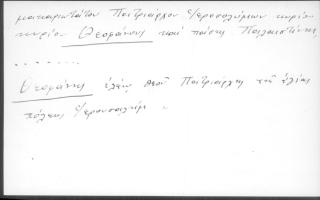 μακαριωτάτου Πατριάρχου Ἱεροσολύμων κυρίου
κυρίου Θεοφάνους καὶ πάσης Παλαιστίνης,
. . . . . . .
Θεοφάνης ἐλέῳ Θεοῦ Πατριάρχης τῆς ἁγίας
πόλεως Ἱερουσαλήμ .